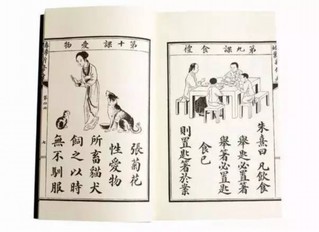 第九課 食禮
朱熹曰 凡飲食
舉匙必置箸
舉箸必置匙
食已
則置匙箸於案
第十課 愛物
張菊花
性愛物
所畜貓犬
飼之以時
無不馴服